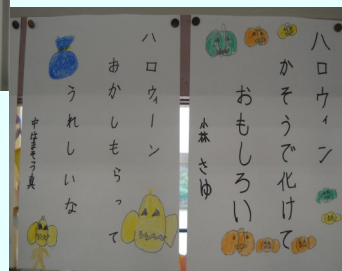 ハロウィン
かそうで化けて
おもしろい
小林 さゆ
ハロウィーン
おかしもらって
うれしいな